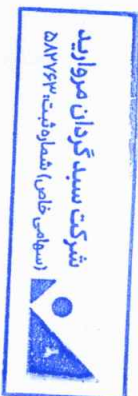 شرکت سبدگردان مروارید
(سهامی خاص) شماره ثبت: ۵۸۲۷۶۳